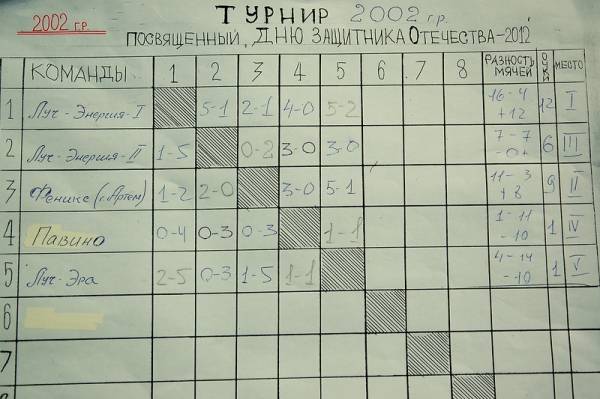 2002 г.р. ТУРНИР 2002 г.р.
ПОСВЯЩЕННЫЙ, ДНЮ ЗАЩИТНИКА ОТЕЧЕСТВА-2012
КОМАНДЫ 1 2 3 4 5 6 7 8 РАЗНОСТЬ МЯЧЕЙ ОЧКИ МЕСТО
1 Луч-Энергия-I 5-1 2-1 4-0 5-2 16-4 +12 12 I
2 Луч-Энергия-II 1-5 0-2 3-0 3-0 7-7 6 III
3 Феникс (г. Артем) 1-2 2-0 3-0 5-1 11-3 +8 9 II
4 0-4 0-3 0-3 1-1 1-11 -10 1 IV
5 Луч-Эра 2-5 0-3 1-5 1-1 4-14 -10 1 V
6
7